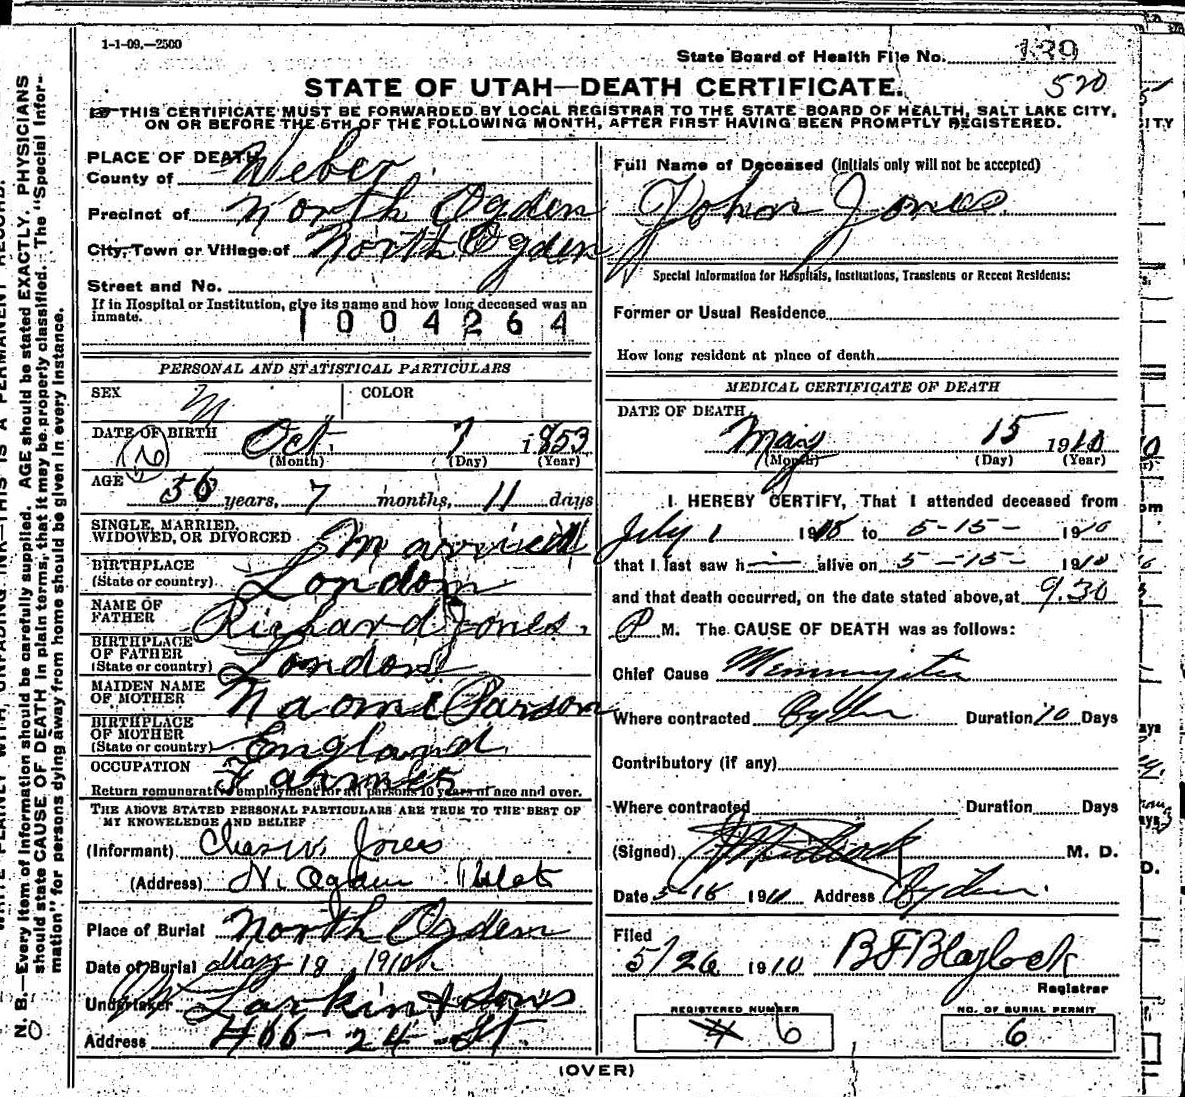 1-1-09.—2500
State Board of Health File No. 139
520
STATE OF UTAH—DEATH CERTIFICATE.
THIS CERTIFICATE MUST BE FORWARDED BY LOCAL REGISTRAR TO THE STATE BOARD OF HEALTH, SALT LAKE CITY,
ON OR BEFORE THE 5TH OF THE FOLLOWING MONTH, AFTER FIRST HAVING BEEN PROMPTLY REGISTERED.
PLACE OF DEATH
County of Weber
Precinct of North Ogden
City, Town or Village of North Ogden
Street and No.
If in Hospital or Institution, give its name and how long deceased was an
inmate.
1004264
PERSONAL AND STATISTICAL PARTICULARS
SEX M COLOR
DATE OF BIRTH Oct. 7 1853
(Month) (Day) (Year)
AGE 56 years, 7 months, 11 days
SINGLE, MARRIED,
WIDOWED, OR DIVORCED Married
BIRTHPLACE
(State or country) London
NAME OF
FATHER Richard Jones.
BIRTHPLACE
OF FATHER
(State or country) London
MAIDEN NAME
OF MOTHER Naomi Parson
BIRTHPLACE
OF MOTHER
(State or country) England
OCCUPATION Farmer
Return remunerative employment for all persons 10 years of age and over.
THE ABOVE STATED PERSONAL PARTICULARS ARE TRUE TO THE BEST OF
MY KNOWLEDGE AND BELIEF
(Informant) Chas W. Jones
(Address) N. Ogden Utah
Place of Burial North Ogden
Date of Burial May 18 1910
Undertaker Larkin & Sons
Address 466-24-St.
Full Name of Deceased (Initials only will not be accepted)
John Jones.
Special Information for Hospitals, Institutions, Transients or Recent Residents:
Former or Usual Residence
How long resident at place of death
MEDICAL CERTIFICATE OF DEATH
DATE OF DEATH
May 15 1910
(Month) (Day) (Year)
I HEREBY CERTIFY, That I attended deceased from
July 1 19 to 5-15- 1910
that I last saw h— alive on 5-15- 1910
and that death occurred, on the date stated above, at 9.30
P M. The CAUSE OF DEATH was as follows:
Chief Cause Meningitis
Where contracted Ogden Duration 10 Days
Contributory (if any)
Where contracted Duration Days
(Signed) M. D.
Date 5-16 191 Address Ogden.
Filed
5/26 1910 BF Blaylock
Registrar
REGISTERED NUMBER
6
NO. OF BURIAL PERMIT
6
(OVER)
N. B.—Every item of information should be carefully supplied. AGE should be stated EXACTLY. PHYSICIANS
should state CAUSE OF DEATH in plain terms, that it may be properly classified. The "Special Infor-
mation" for persons dying away from home should be given in every instance.